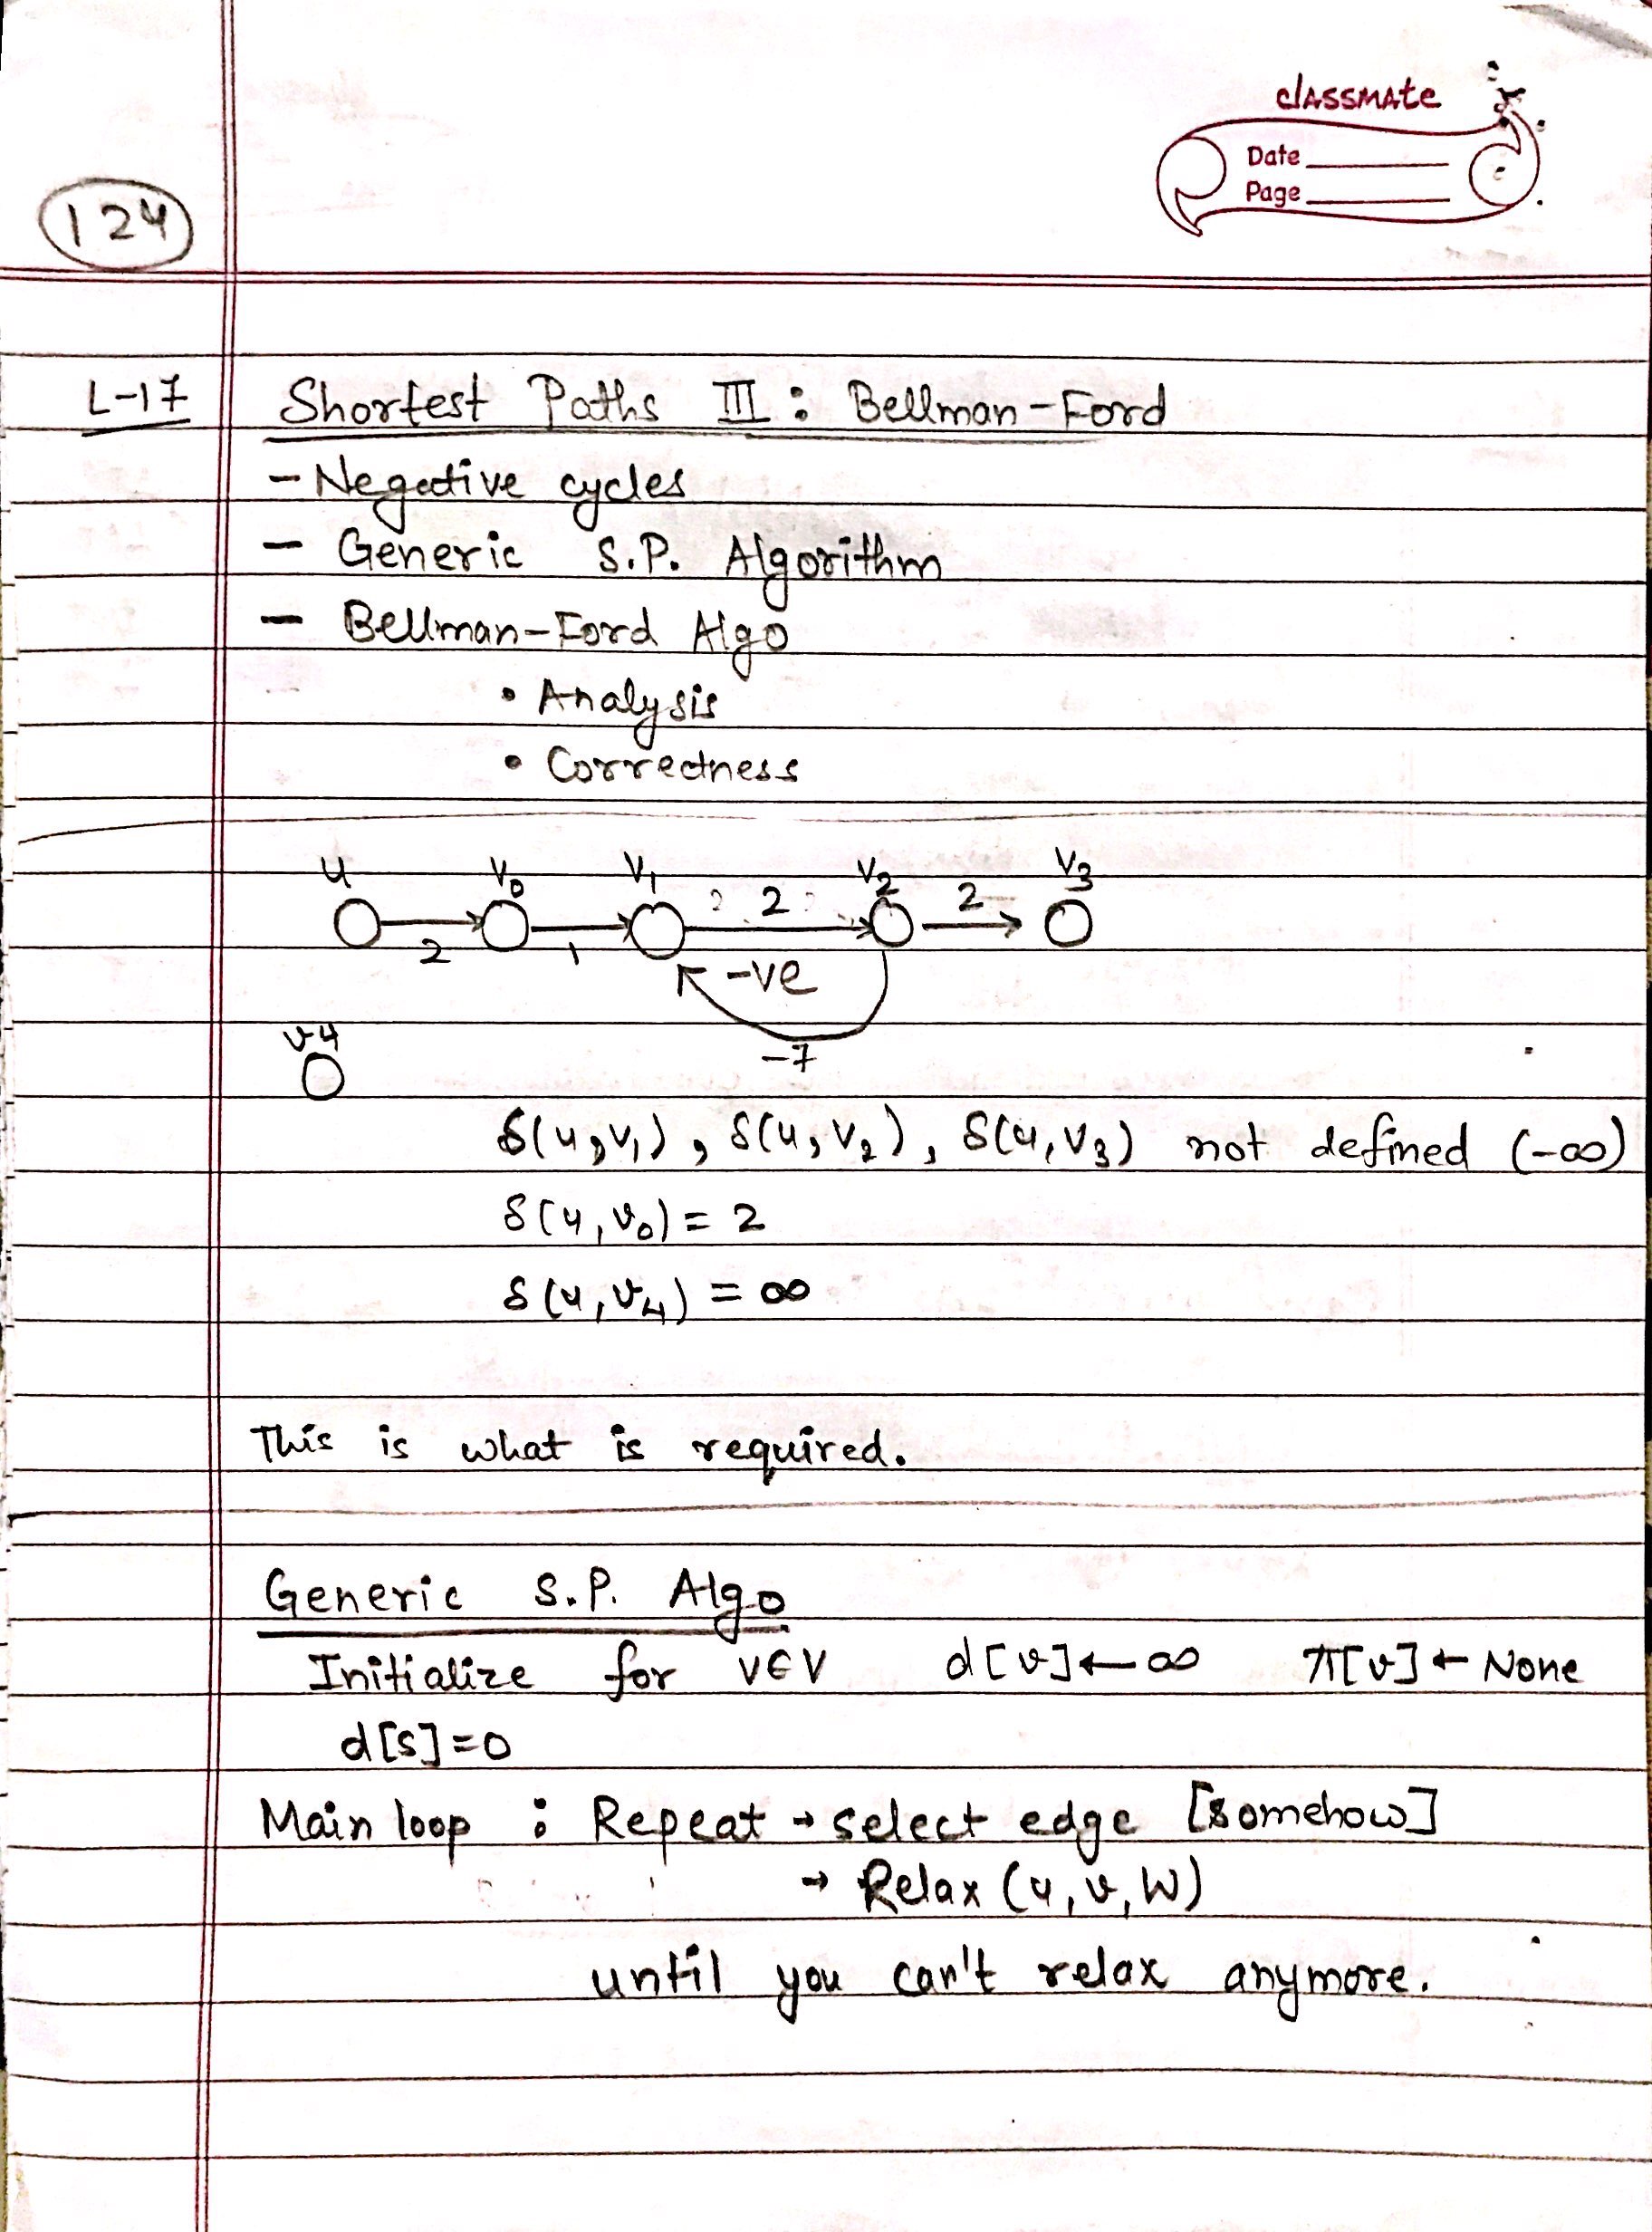 classmate
Date
Page
124
L-17 Shortest Paths III : Bellman-Ford
- Negative cycles
- Generic S.P. Algorithm
- Bellman-Ford Algo
• Analysis
• Correctness
u v₀ v₁ v₂ v₃
2 1 2 2
-ve
-7
v4
δ(u,v₁), δ(u,v₂), δ(u,v₃) not defined (-∞)
δ(u,v₀) = 2
δ(u,v₄) = ∞
This is what is required.
Generic S.P. Algo
Initialize for v∈V d[v]←∞ π[v]←None
d[s]=0
Main loop : Repeat → select edge [somehow]
→ Relax (u,v,W)
until you can't relax anymore.